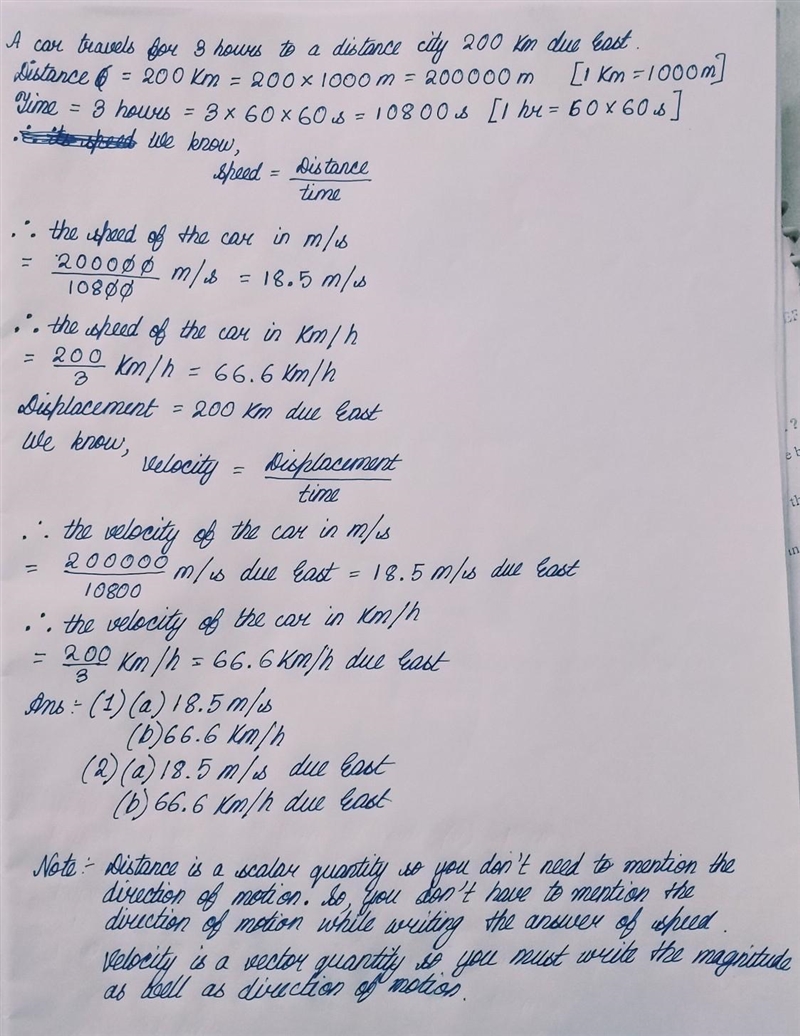 A car travels for 3 hours to a distance city 200 Km due East.
Distance = 200 Km = 200 × 1000 m = 200000 m [1 Km = 1000 m]
Time = 3 hours = 3 × 60 × 60 s = 10800 s [1 hr = 60 × 60 s]
We know,
Speed = Distance / time
∴ the speed of the car in m/s
= 200000/10800 m/s = 18.5 m/s
∴ the speed of the car in Km/h
= 200/3 Km/h = 66.6 Km/h
Displacement = 200 Km due East
We know,
Velocity = Displacement / time
∴ the velocity of the car in m/s
= 200000/10800 m/s due East = 18.5 m/s due East
∴ the velocity of the car in Km/h
= 200/3 Km/h = 66.6 Km/h due East
Ans :- (1) (a) 18.5 m/s
(b) 66.6 Km/h
(2) (a) 18.5 m/s due East
(b) 66.6 Km/h due East
Note :- Distance is a scalar quantity so you don't need to mention the
direction of motion. So, you don't have to mention the
direction of motion while writing the answer of speed.
Velocity is a vector quantity so you must write the magnitude
as well as direction of motion.